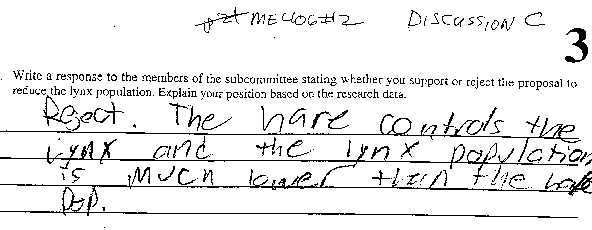 MEC406#2 DISCUSSION C
3
. Write a response to the members of the subcommittee stating whether you support or reject the proposal to
reduce the lynx population. Explain your position based on the research data.
Reject. The hare controls the
Lynx and the lynx population
is much lower than the hare
Pop.